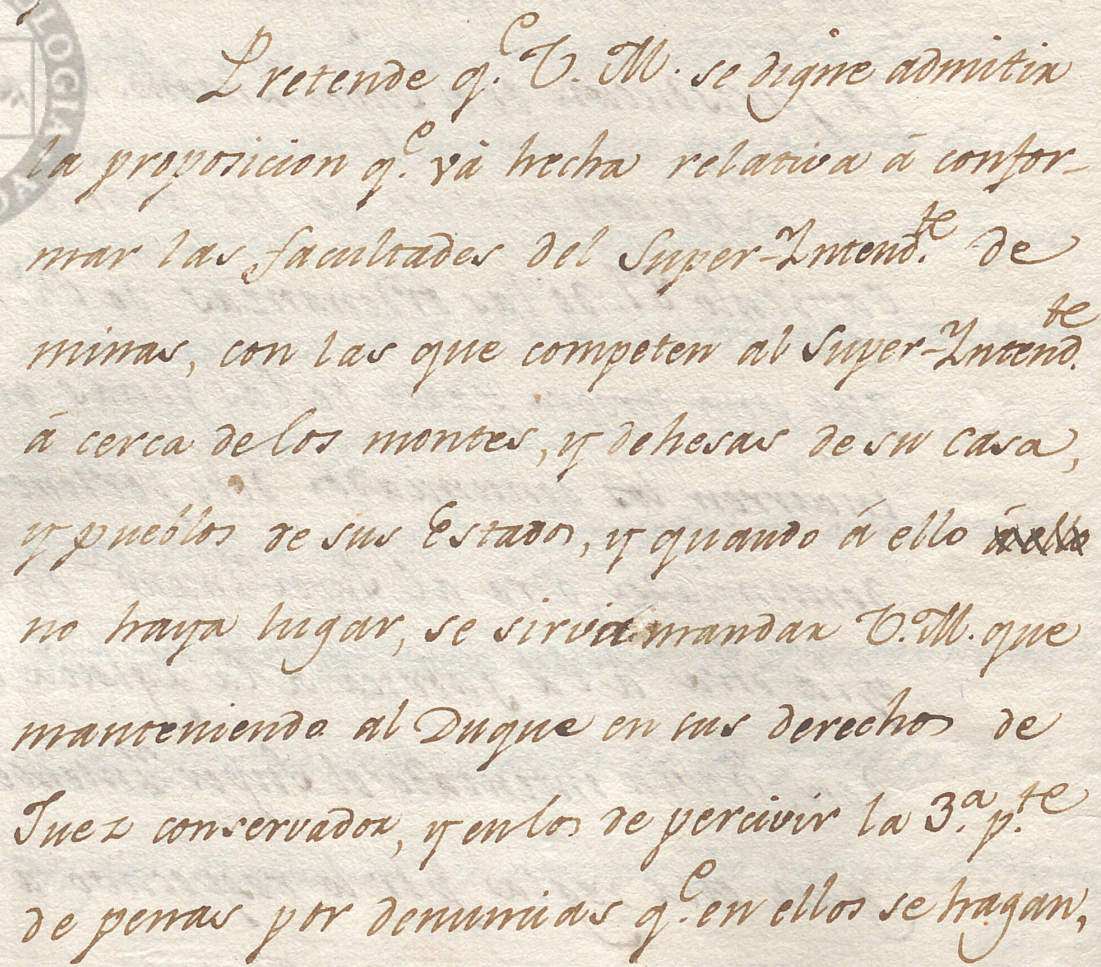 Pretende q.e V. M. se digne admitir
la proposicion q.e vá hecha relativa á confor-
mar las facultades del Super-Intend.te de
minas, con las que competen al Super-Intend.te
á cerca de los montes, y dehesas de su casa,
y pueblos de sus Estados, y quando á ello á ello
no haya lugar, se sirva mandar V. M. que
manteniendo al Duque en sus derechos de
Juez conservador, y en los de percivir la 3.a p.te
de penas por denuncias q.e en ellos se hagan,